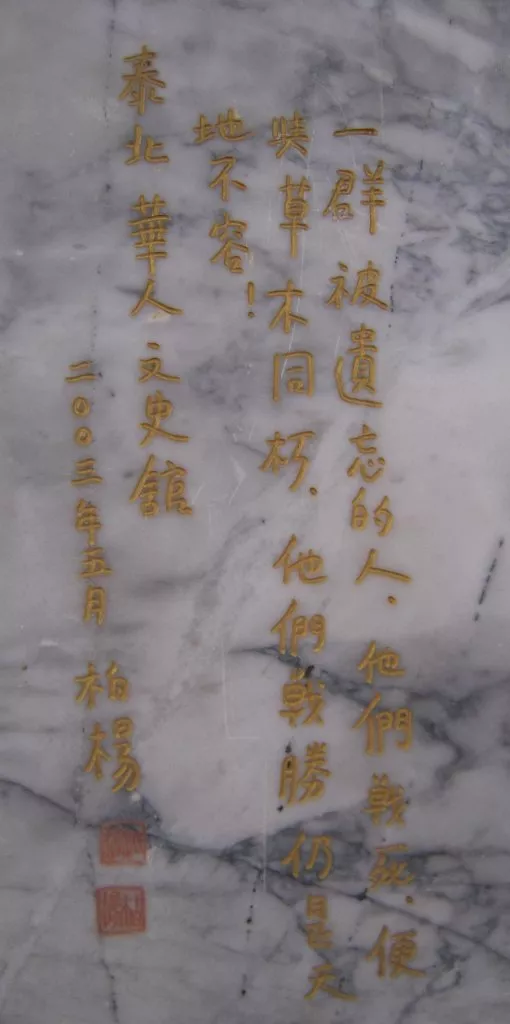 一群被遺忘的人.他們戰死.便
與草木同朽.他們戰勝仍是天
地不容!
泰北華人文史館
二〇〇三年五月 柏楊